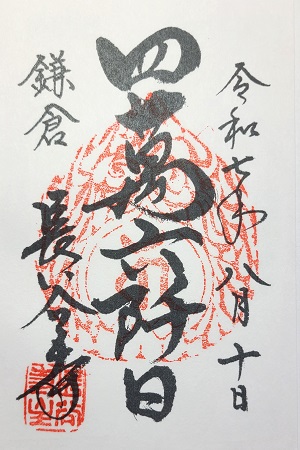 令和七年八月十日
四萬六千日
鎌倉
長谷寺